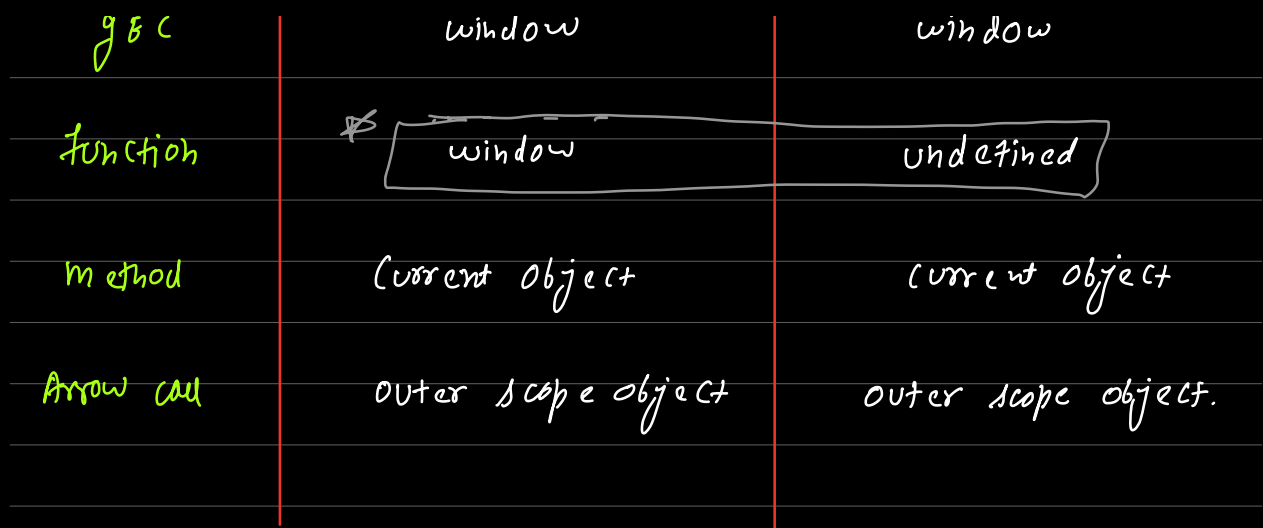 gEC window window
function window undefined
method Current object current object
Arrow call outer scope object outer scope object.